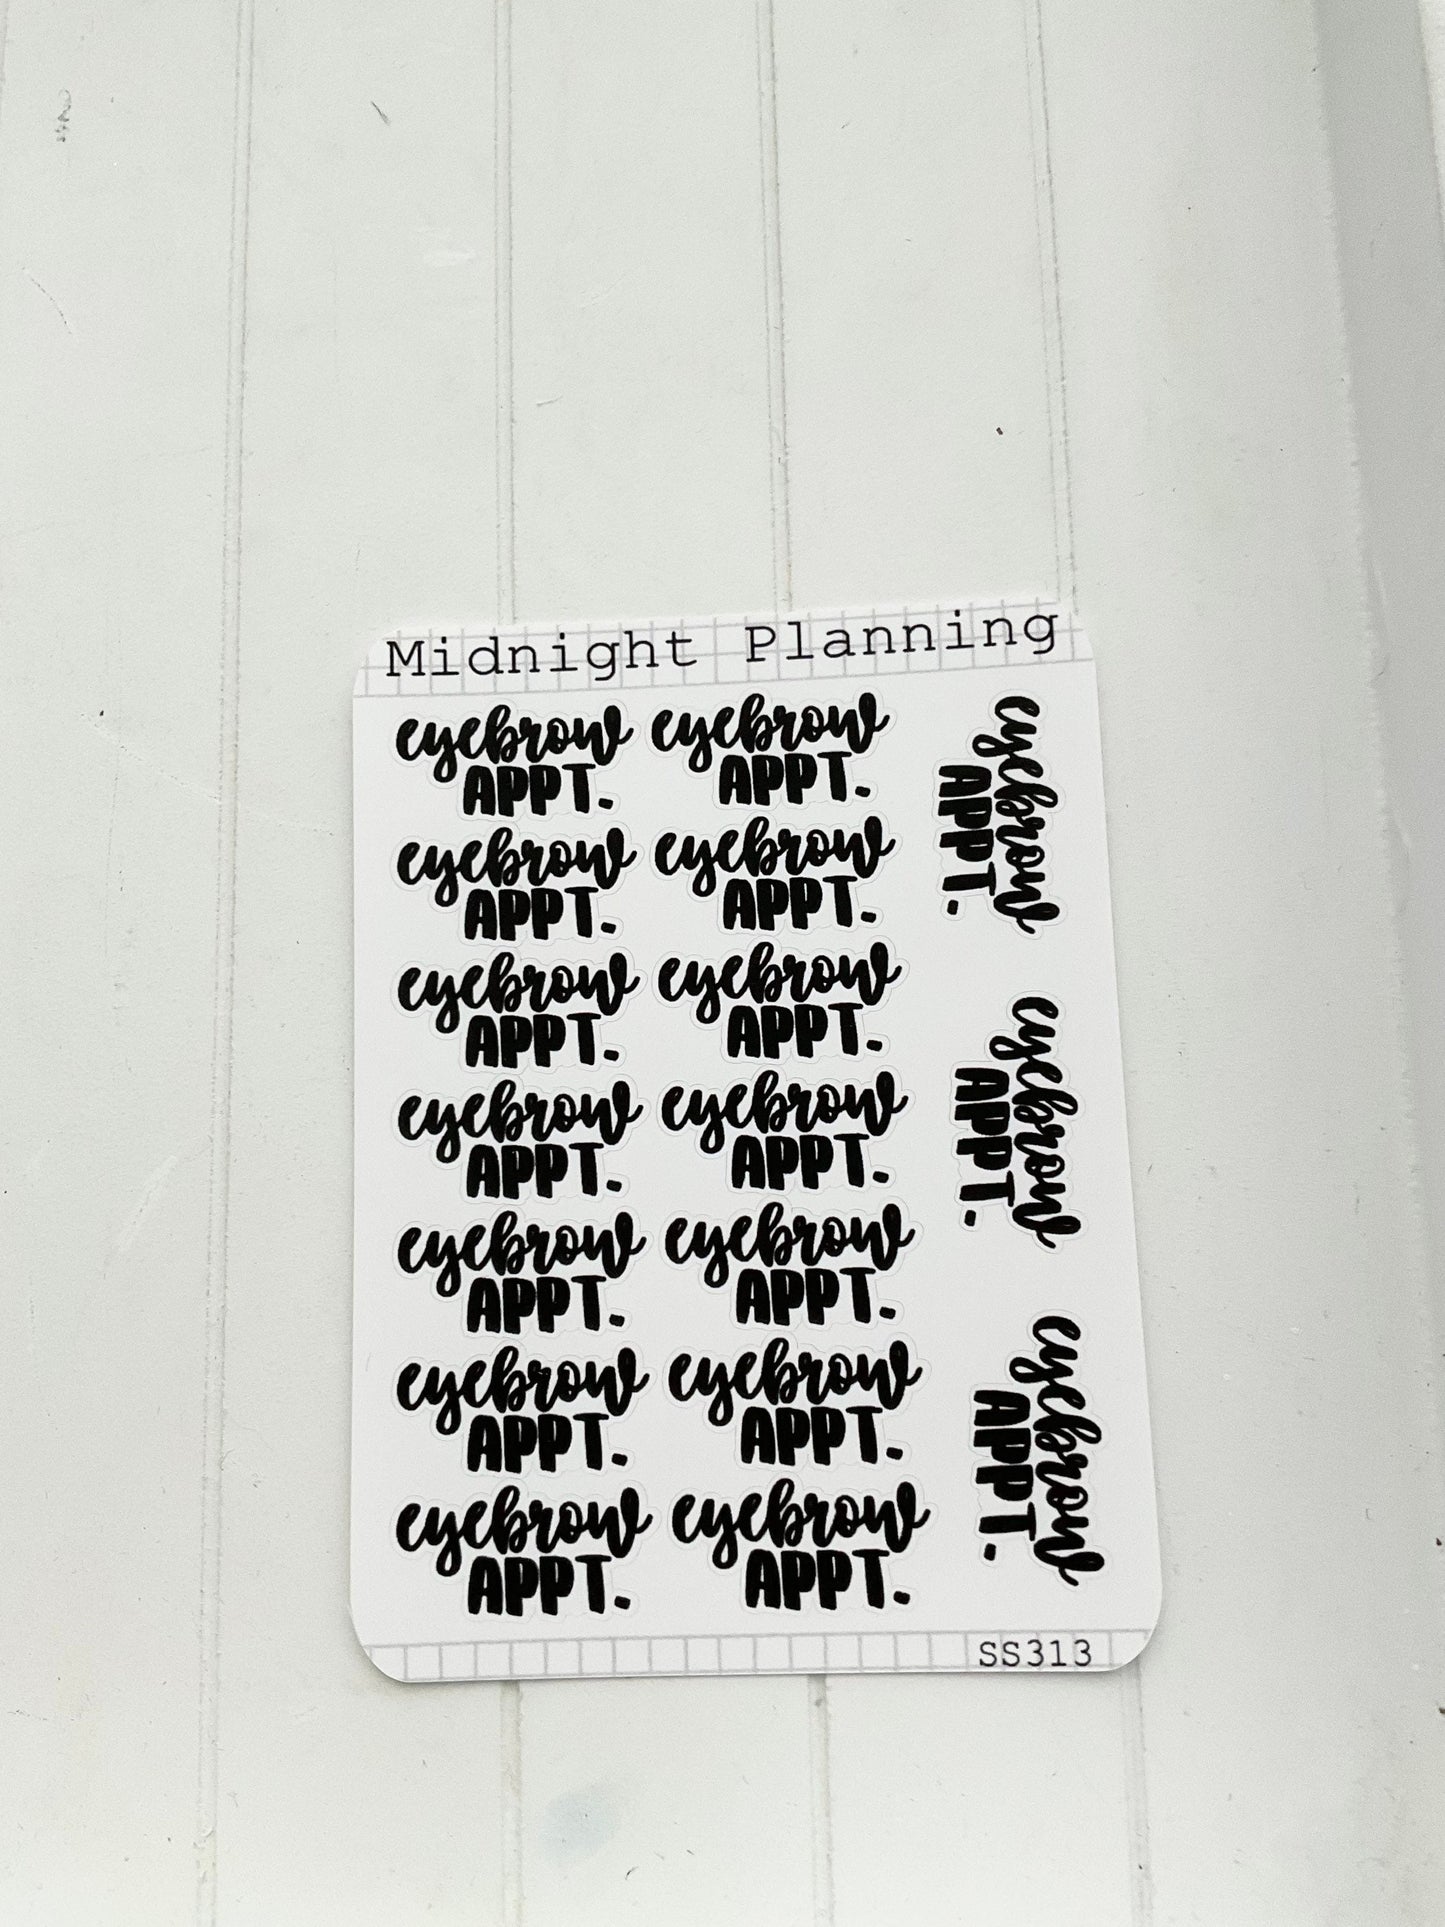 Midnight Planning
eyebrow
APPT.
eyebrow
APPT.
eyebrow
APPT.
eyebrow
APPT.
eyebrow
APPT.
eyebrow
APPT.
eyebrow
APPT.
eyebrow
APPT.
eyebrow
APPT.
eyebrow
APPT.
eyebrow
APPT.
eyebrow
APPT.
eyebrow
APPT.
eyebrow
APPT.
eyebrow
APPT.
eyebrow
APPT.
eyebrow
APPT.
SS313